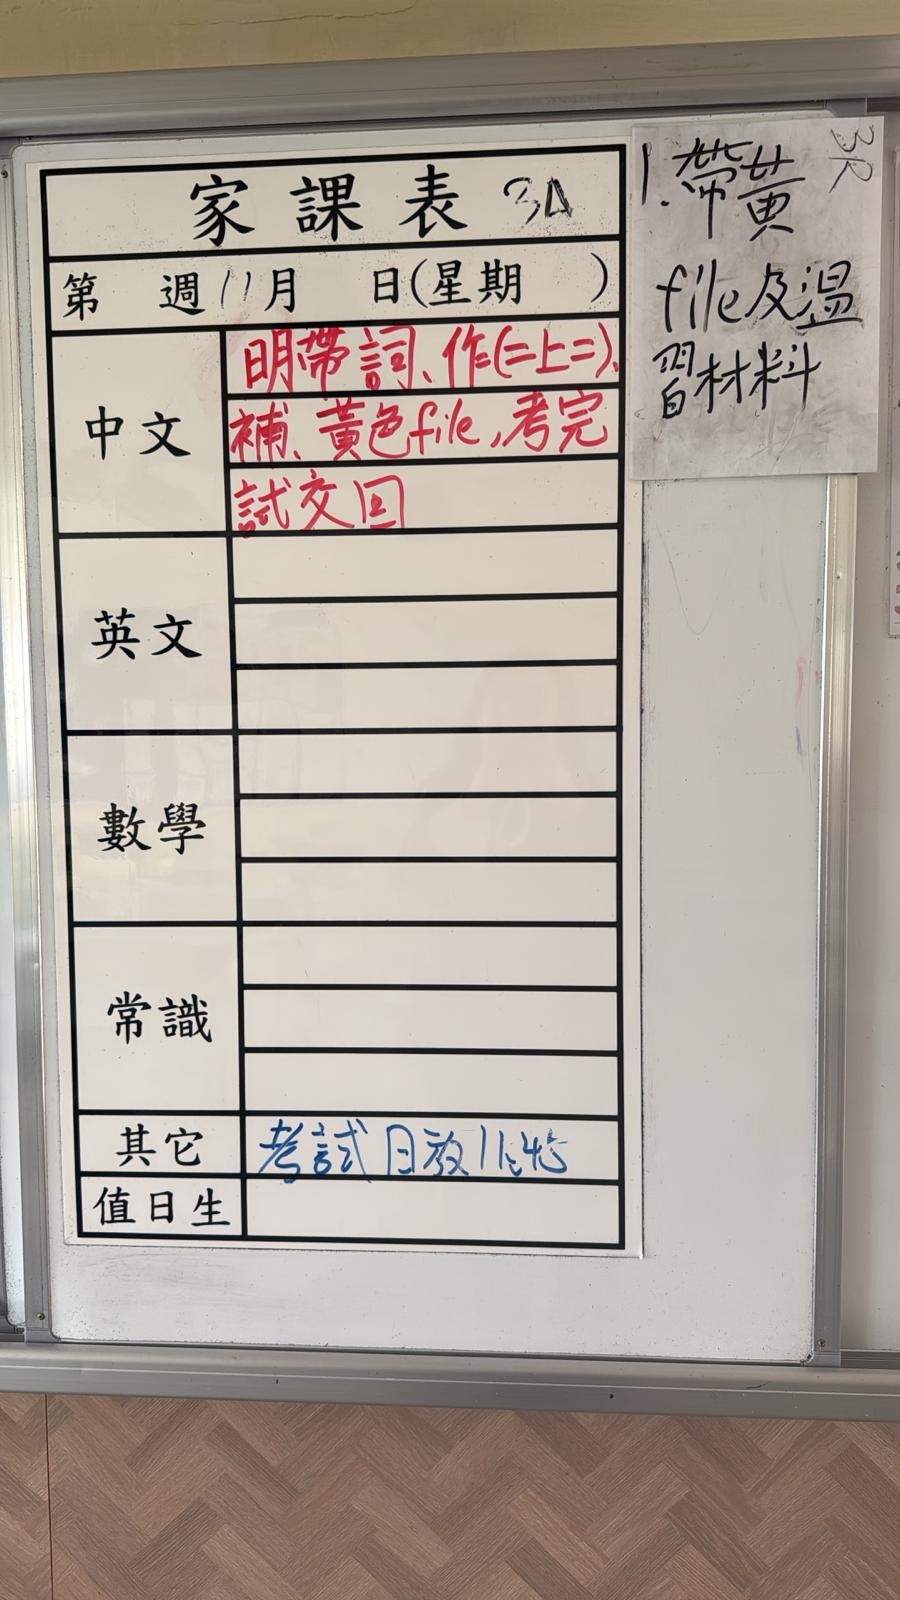 家課表 3A
第 週 11月 日(星期 )
中文
明帶詞、作(二上二)、
補、黃色file,考完
試交回
英文
數學
常識
其它
考試日放11:45
值日生
3R
1. 帶黃
file及溫
習材料